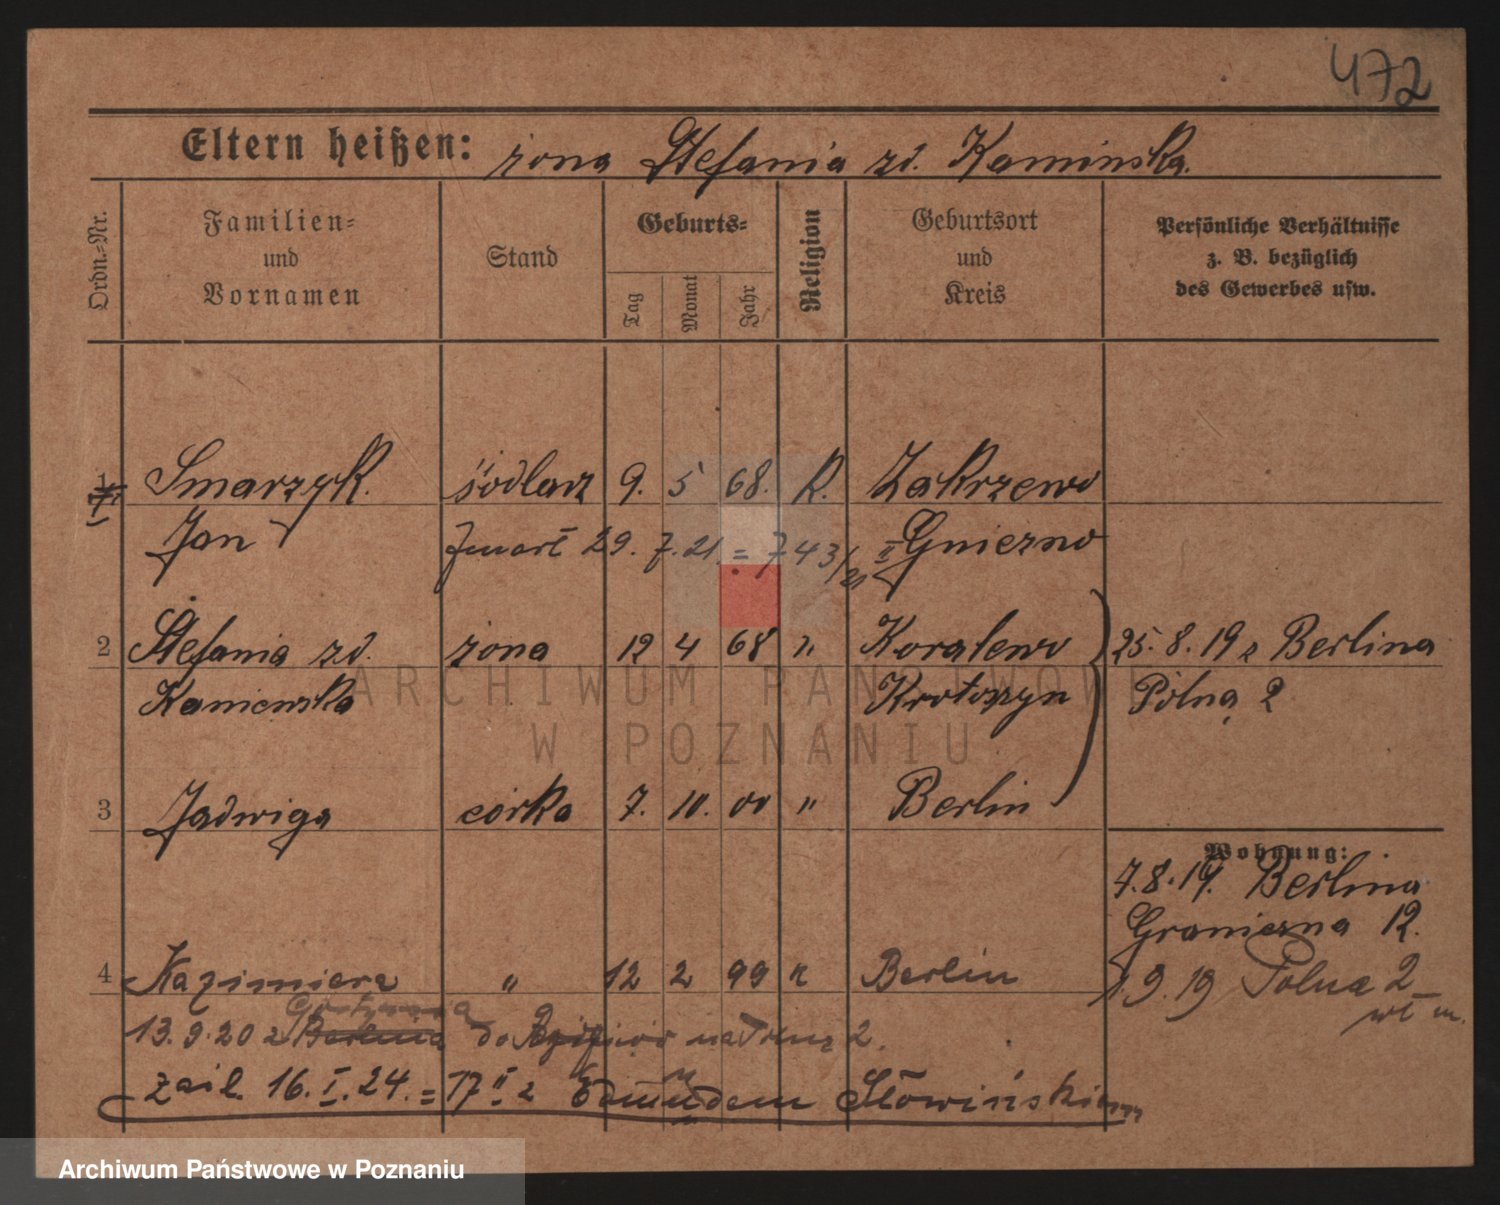 472
Eltern heißen: żona Stefania zd. Kaminska.
Ordn.-Nr. Familien- und Vornamen Stand Geburts- Tag Monat Jahr Religion Geburtsort und Kreis Persönliche Verhältnisse z. B. bezüglich des Gewerbes usw.
1 Smarzyk. siodlarz 9. 5 68. R. Zakrzewo
Jan zmarł 29. 7. 21. = 743/21 II Gniezno
2 Stefania zd. żona 12 4 68 " Koralewo 25. 8. 19 z Berlina
Kaniewska Krotoszyn Polna 2
3 Jadwiga córka 7. 10. 00 " Berlin
Wohnung:
7.8.19. Berlina
Graniczna 12.
4 Kazimiera " 12 2 99 " Berlin 1.9.19 Polna 2
wł m.
13.9.20 z Berlina do na 2.
zaśl. 16. I. 24. = 17 II z Edmundem Słowińskim
ARCHIWUM PAŃSTWOWE
W POZNANIU
Archiwum Państwowe w Poznaniu